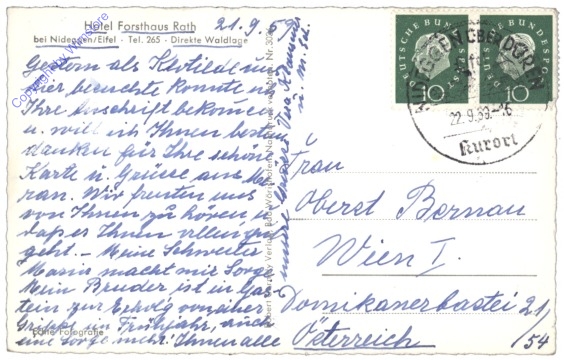 Hotel Forsthaus Rath
bei Nideggen/Eifel - Tel. 265 - Direkte Waldlage
21.9.59
Gestern als Klotilde uns
hier besuchte konnte ich
Ihre Anschrift bekommen
u. will ich Ihnen bestens
danken für Ihre schöne
Karte u. Grüsse aus Me-
ran. Wir freuten uns
von Ihnen zu hören u.
daß es Ihnen allen gut
geht. - Meine Schwester
Maria macht mir Sorge
Mein Bruder ist in Gas-
tein zur Erholg von
Grippe im Frühjahr, auch
eine Sorge mehr! Ihnen alle
unsere
Echte Fotografie
Copyright by
DEUTSCHE BUNDESPOST
10
DEUTSCHE BUNDESPOST
10
NIDEGGEN über DÜREN
22.9.59-16
Kurort
Frau
Oberst Bernau
Wien I.
Dominikanerbastei 21
/54
Österreich